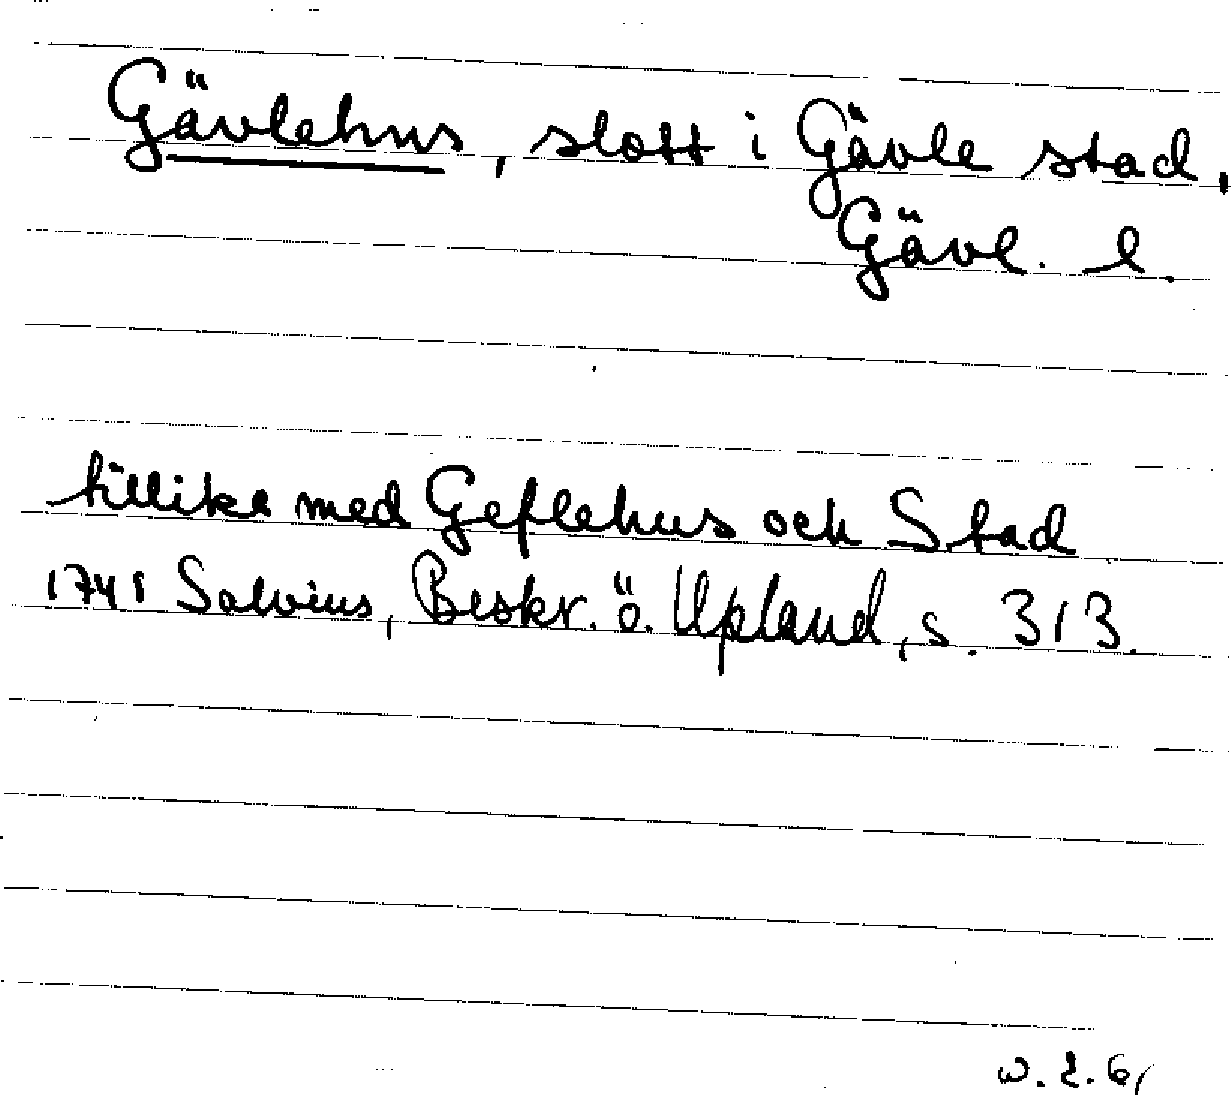 Gävlehus, slott i Gävle stad,
Gävl. l.
tillika med Geflehus och Stad
1741 Salvius, Beskr. ö. Upland, s. 313.